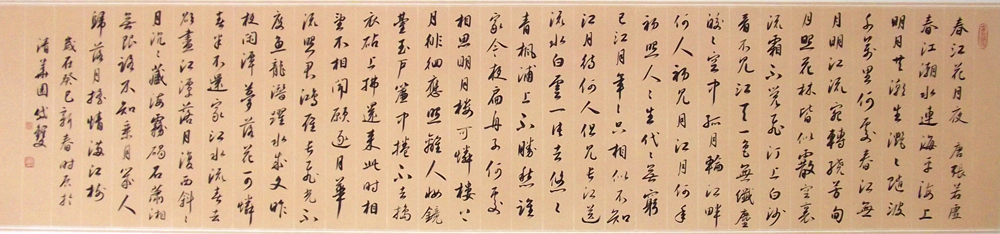 春江花月夜 唐張若虛
春江潮水連海平海上
明月共潮生灩々隨波
千萬里何處春江無
月明江流宛轉繞芳甸
月照花林皆似霰空裏
流霜不覺飛汀上白沙
看不見江天一色無纖塵
皎々空中孤月輪江畔
何人初見月江月何年
初照人々生代々無窮
已江月年々只相似不知
江月待何人但見長江送
流水白雲一片去悠々
青楓浦上不勝愁誰
家今夜扁舟子何處
相思明月樓可憐樓上
月徘徊應照離人妝鏡
臺玉戶簾中捲不去搗
衣砧上拂還來此時相
望不相聞願逐月華
流照君鴻雁長飛光不
度魚龍潛躍水成文昨
夜閑潭夢落花可憐
春半不還家江水流春去
欲盡江潭落月復西斜々
月沉々藏海霧碣石瀟湘
無限路不知乘月幾人
歸落月搖情滿江樹
歲在癸巳新春時居於
清華園